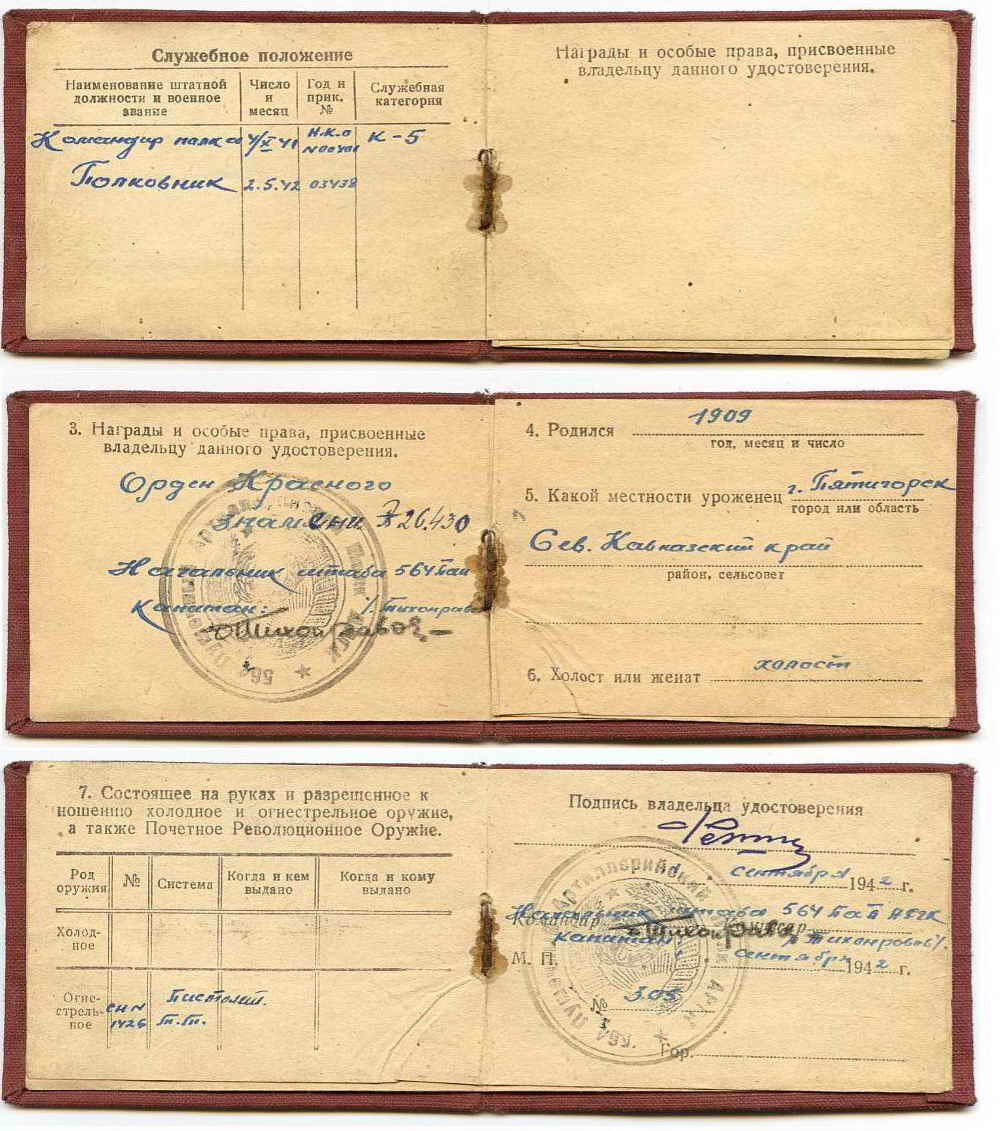 Служебное положение
Наименование штатной должности и военное звание
Число и месяц
Год и прик. №
Служебная категория
Командир полка 4/X 41 Н.К.О К-5
Полковник 2.5.42 03438
Награды и особые права, присвоенные
владельцу данного удостоверения.
3. Награды и особые права, присвоенные
владельцу данного удостоверения.
Орден Красного
Знамени № 26.430
Начальник штаба 564 Пап
Капитан: /. Тихонравов
4. Родился 1909
год, месяц и число
5. Какой местности уроженец г. Пятигорск
город или область
Сев. Кавказский край
район, сельсовет
6. Холост или женат холост
7. Состоящее на руках и разрешенное к
ношению холодное и огнестрельное оружие,
а также Почетное Революционное Оружие.
Род оружия
№
Система
Когда и кем выдано
Когда и кому выдано
Холод-
ное
Огне-
стрель-
ное
СН№ 1426
Пистолет.
Т.Т.
Подпись владельца удостоверения
сентября 1942 г.
Начальник штаба 564 Пап АРГК
Командир
капитан: /Тихонравов/.
М. П. сентября 1942 г.
№ 305
Гор.
564 Пушечный Артиллерийский Полк АРГК